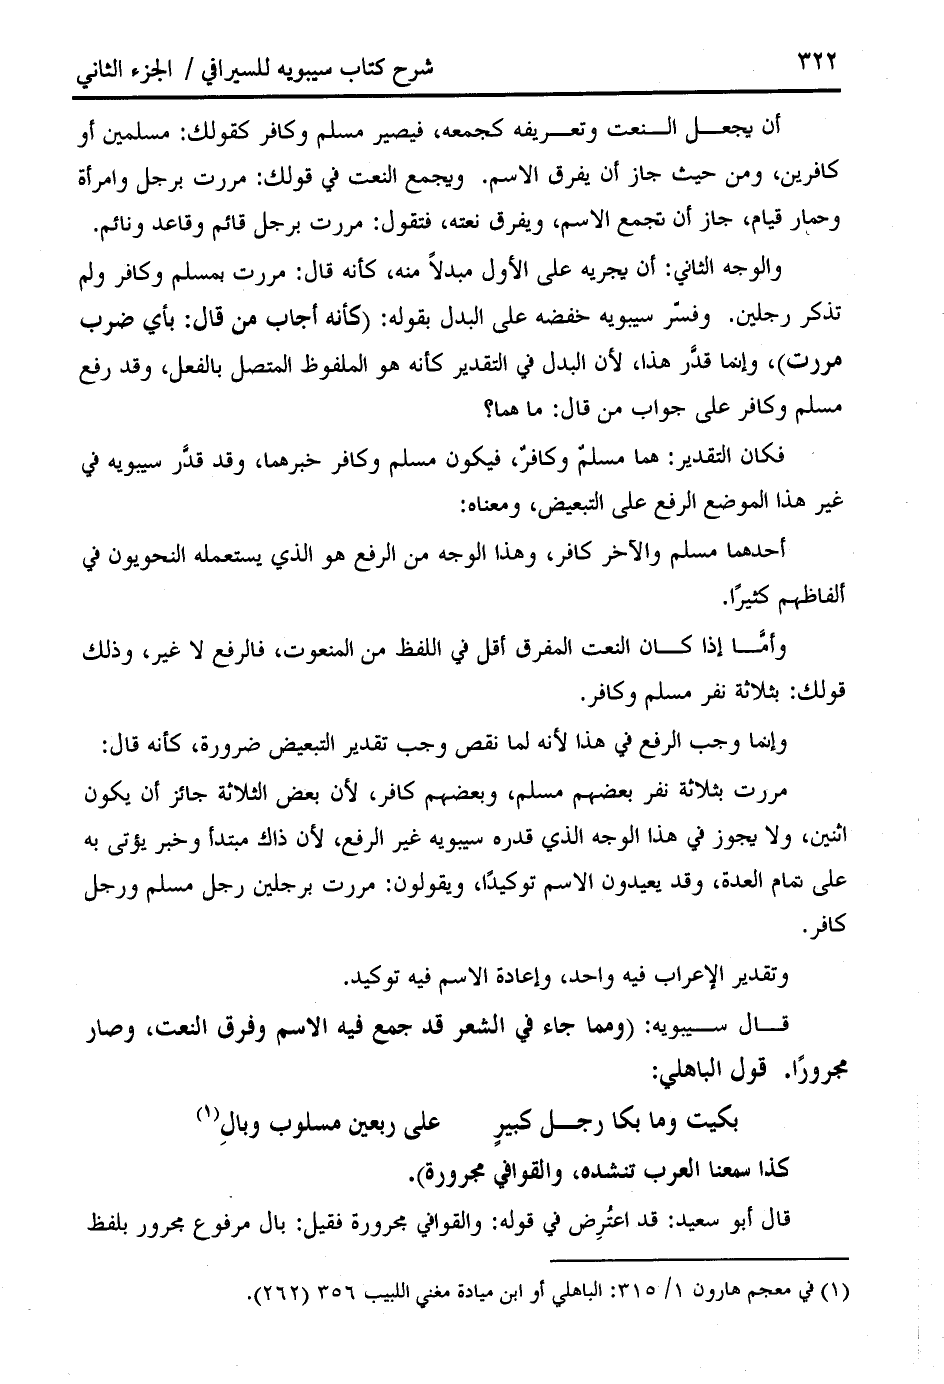 ٣٢٢
شرح كتاب سيبويه للسيرافي / الجزء الثاني
أن يجعل النعت وتعريفه كجمعه، فيصير مسلم وكافر كقولك: مسلمين أو
كافرين، ومن حيث جاز أن يفرق الاسم. ويجمع النعت في قولك: مررت برجل وامرأة
وحمار قيام، جاز أن تجمع الاسم، ويفرق نعته، فتقول: مررت برجل قائم وقاعد ونائم.
والوجه الثاني: أن يجريه على الأول مبدلاً منه، كأنه قال: مررت بمسلم وكافر ولم
تذكر رجلين. وفسّر سيبويه خفضه على البدل بقوله: (كأنه أجاب من قال: بأي ضرب
مررت)، وإنما قدَّر هذا، لأن البدل في التقدير كأنه هو الملفوظ المتصل بالفعل، وقد رفع
مسلم وكافر على جواب من قال: ما هما؟
فكان التقدير: هما مسلمٌ وكافرٌ، فيكون مسلم وكافر خبرهما، وقد قدَّر سيبويه في
غير هذا الموضع الرفع على التبعيض، ومعناه:
أحدهما مسلم والآخر كافر، وهذا الوجه من الرفع هو الذي يستعمله النحويون في
ألفاظهم كثيرًا.
وأمَّا إذا كان النعت المفرق أقل في اللفظ من المنعوت، فالرفع لا غير، وذلك
قولك: بثلاثة نفر مسلم وكافر.
وإنما وجب الرفع في هذا لأنه لما نقص وجب تقدير التبعيض ضرورة، كأنه قال:
مررت بثلاثة نفر بعضهم مسلم، وبعضهم كافر، لأن بعض الثلاثة جائز أن يكون
اثنين، ولا يجوز في هذا الوجه الذي قدره سيبويه غير الرفع، لأن ذاك مبتدأ وخبر يؤتى به
على تمام العدة، وقد يعيدون الاسم توكيدًا، ويقولون: مررت برجلين رجل مسلم ورجل
كافر.
وتقدير الإعراب فيه واحد، وإعادة الاسم فيه توكيد.
قال سيبويه: (ومما جاء في الشعر قد جمع فيه الاسم وفرق النعت، وصار
مجرورًا. قول الباهلي:
بكيت وما بكا رجل كبيرٍ على ربعين مسلوب وبالِ(١)
كذا سمعنا العرب تنشده، والقوافي مجرورة).
قال أبو سعيد: قد اعتُرِض في قوله: والقوافي مجرورة فقيل: بال مرفوع مجرور بلفظ
(١) في معجم هارون ١/ ٣١٥: الباهلي أو ابن ميادة مغني اللبيب ٣٥٦ (٢٦٢).